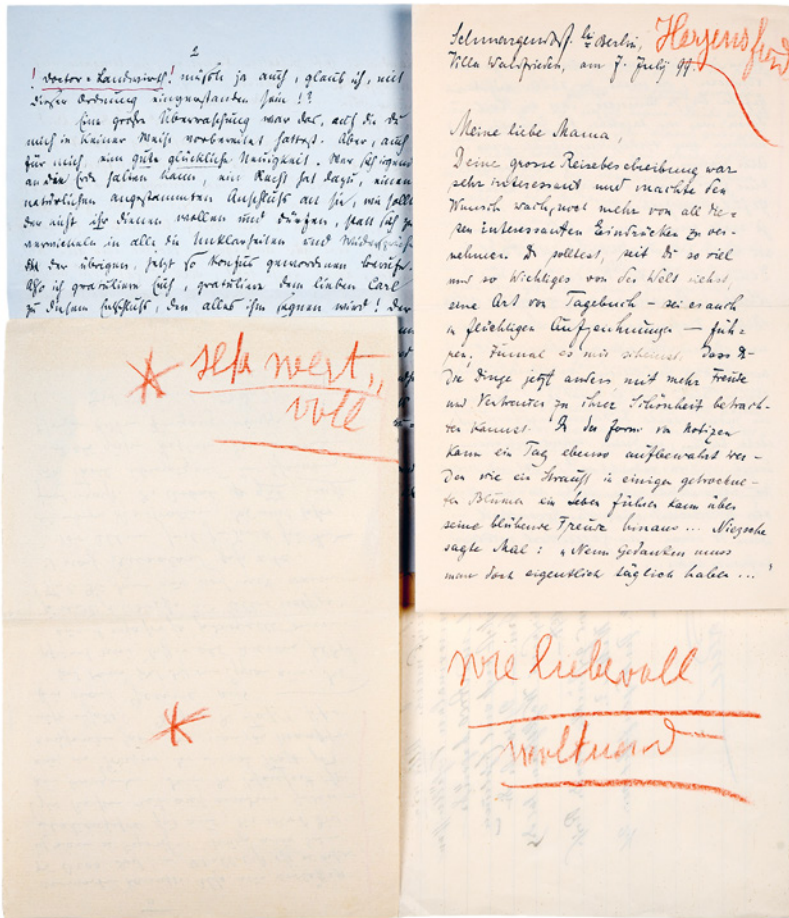 2
! Doctor = Landwirth! müßte ja auch, glaub ich, mit
dieser Ordnung einverstanden sein!?
Eine große Überraschung war das, auf die Du
mich in keiner Weise vorbereitet hattest. Aber, auch
für mich, eine gute glückliche Neuigkeit. Wer sich irgend
an die Erde halten kann, ein Recht hat dazu, einen
natürlichen angestammten Anschluß an sie, wie sollte
der nicht ihr dienen wollen und dürfen, statt sich zu
verwickeln in alle die Unklarheiten und
der übrigen, jetzt so konfus gewordenen Berufe.
Also ich gratuliere Euch, gratuliere dem lieben Carl
zu diesem Entschluß, den alles ihm segnen wird! Der
Schmargendorf bei Berlin,
Villa Waldfrieden, am 7. July 99.
Meine liebe Mama,
Deine grosse Reisebeschreibung war
sehr interessant und machte den
Wunsch wach, noch mehr von all die=
sen interessanten Eindrücken zu ver=
nehmen. Du solltest, seit Du so viel
und so Wichtiges von der Welt siehst,
eine Art von Tagebuch – sei es auch
in flüchtigen Aufzeichnungen – füh=
ren; zumal es mir scheint, dass Du
die Dinge jetzt anders, mit mehr Freude
und Vertrauen zu ihrer Schönheit betrach=
ten kannst. In der Form von Notizen
kann ein Tag ebenso aufbewahrt wer=
den wie ein Strauß in einigen getrockne=
ten Blumen ein Leben führen kann über
seine blühende Freude hinaus ... Niezsche
sagte Mal: „Nenn Gedanken muss
man doch eigentlich täglich haben ..."
sehr wert„
voll
wie liebevoll